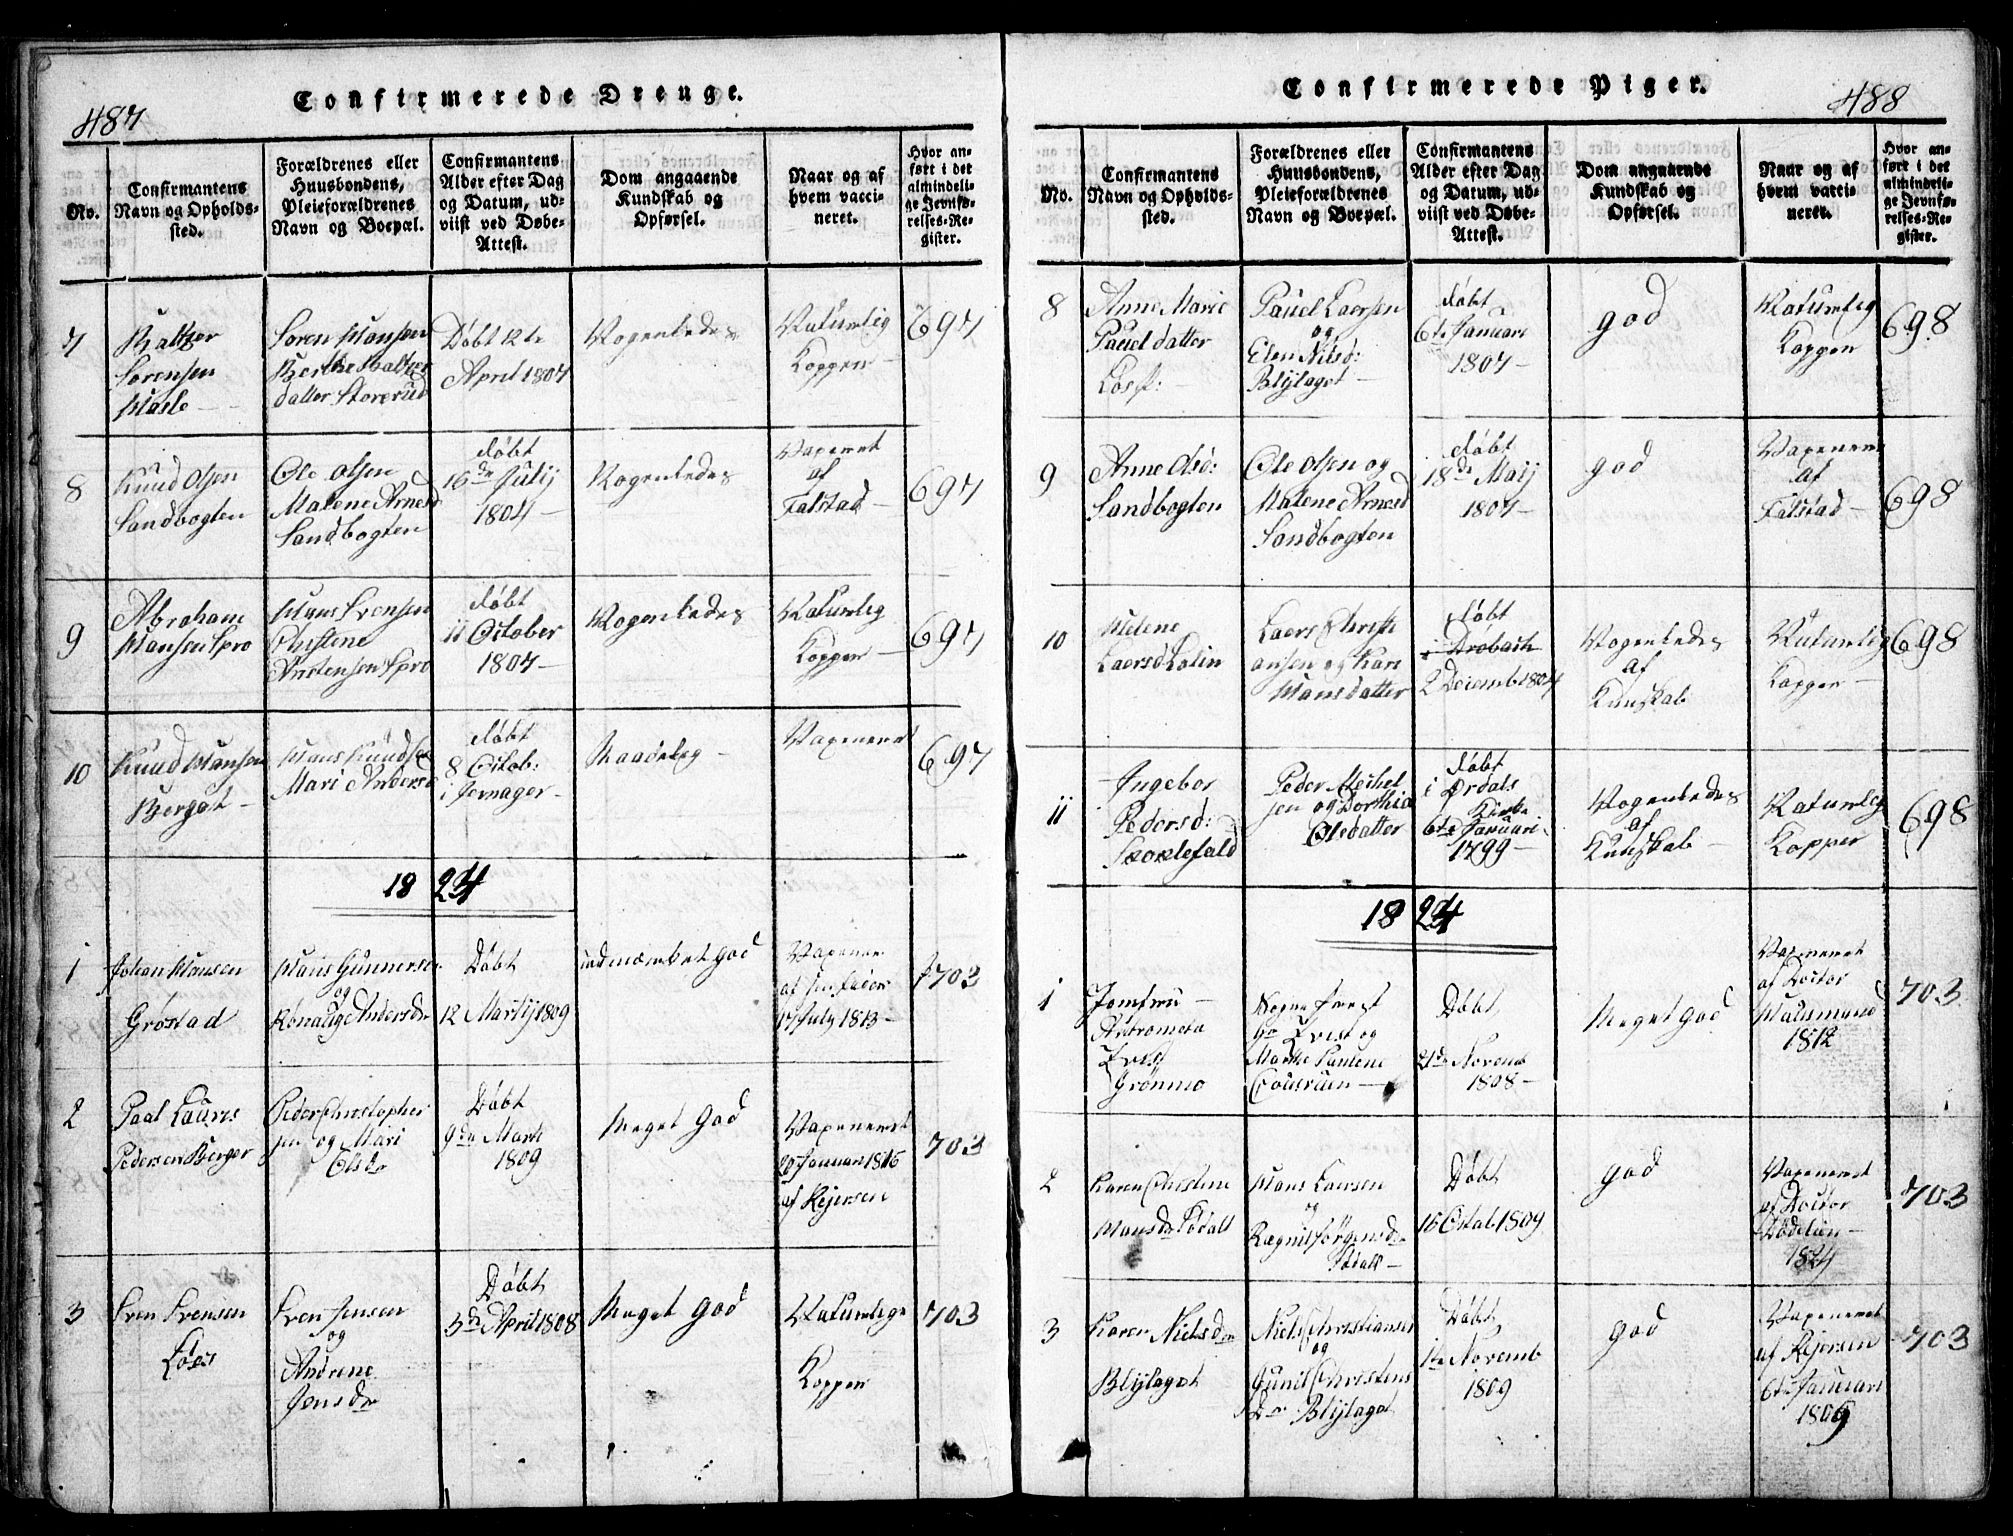 487
Confirmerede Drenge.
No.
Confirmantens
Navn og Opholds-
sted.
Forældrenes eller
Huusbondens,
Pleieforældrenes
Navn og Boepæl.
Confirmantens
Alder efter Dag
og Datum, ud-
viist ved Døbe-
Attest.
Dom angaaende
Kundskab og
Opførsel.
Naar og af
hvem vacci-
neret.
Hvor an-
ført i det
almindeli-
ge Jevnfø-
relses-Re-
gister.
7
Baltzer
Sørensen
Soren Hansen
Berthe Baltzer
datter Storerud
Døbt 12te
April 1807
Nogenledes
Naturlig
Kopper
697
8
Knud Olsen
Sandbogten
Ole Olsen
Malene Arnesd
Sandbogten
døbt
16de Julij
1804
Nogenledes
Vaxeneret
af
Falstad
697
9
Abraham
Hansen Spro
Hans Svensen
Christene
Christensen Spro
døbt
11 October
1807
Nogenledes
Naturlig
Kopper
697
10
Knud Hansen
Bergat
Hans Knudsen
Mari Andersd
døbt
8 Octob:
i Jernager
Maadelig
Vaxeneret
697
1824
1
Johan Hansen
Grøstad
Hans Gunnersen
og
Rønaug Andersdr
Døbt
12 Martij 1809
udmærket god
Vaxeneret
17 July 1813
703
2
Paal Laures
Pedersen Berger
Peder Christopher
sen og Mari
Olsdr
Døbt
9de Marti
1809
Meget god
Vaxeneret
20 Januari 1816
af Rejersen
703
3
Sven Svensen
Sven Jensen
og
Andrene
Jensdr
Døbt
3de April 1808
Meget god
Naturlige
Kopper
703
488
Confirmerede Piger.
No.
Confirmantens
Navn og Opholds-
sted.
Forældrenes eller
Huusbondens,
Pleieforældrenes
Navn og Boepæl.
Confirmantens
Alder efter Dag
og Datum, ud-
viist ved Døbe-
Attest.
Dom angaaende
Kundskab og
Opførsel.
Naar og af
hvem vacci-
neret.
Hvor an-
ført i det
almindeli-
ge Jevnfø-
relses-Re-
gister.
8
Anne Marie
Pauel datter
Pauel Laersen
og
Elen Nilsd:
Blijlaget
døbt
6te Januari
1807
god
Naturlig
Kopper
698
9
Anne Olsd:
Sandbogten
Ole Olsen og
Malene Arnesd
Sandbogten
døbt
18de Maij
1807
god
Vaxeneret
af
Falstad
698
10
Helene
Laersd Lolin
Laers Christi
ansen og Kari
Hansdatter
døbt
i Drøbach
2 Decemb 1804
Nogenledes
af
Kunskab
Naturlig
Kopper
698
11
Ingebor
Pedersd:
Skoklefald
Peder Michel
sen og Dorthia
Olsdatter
døbt
i Ørdals
Kirke
6te Januari
1799
Nogenledes
af
Kunskab
Naturlig
Kopper
698
1824
1
Jomfru
Grønmo
Døbt
21de Novemb
1808
Meget god
Vaxeneret
af Doctor
1812
703
2
Karen Christine
Hansdr Fødall
Hans Laersen
og
Ragnil Jørgensdr
Fødall
Døbt
16 Octob 1809
god
Vaxeneret
af Doctor
1824
703
3
Karen Nielsdr
Blijlaget
Niels Christiansen
og
Gunil Christens
Dr Blijlaget
Døbt
1te Novemb
1809
god
Vaxeneret
af Rejersen
6te Januari
1809
703